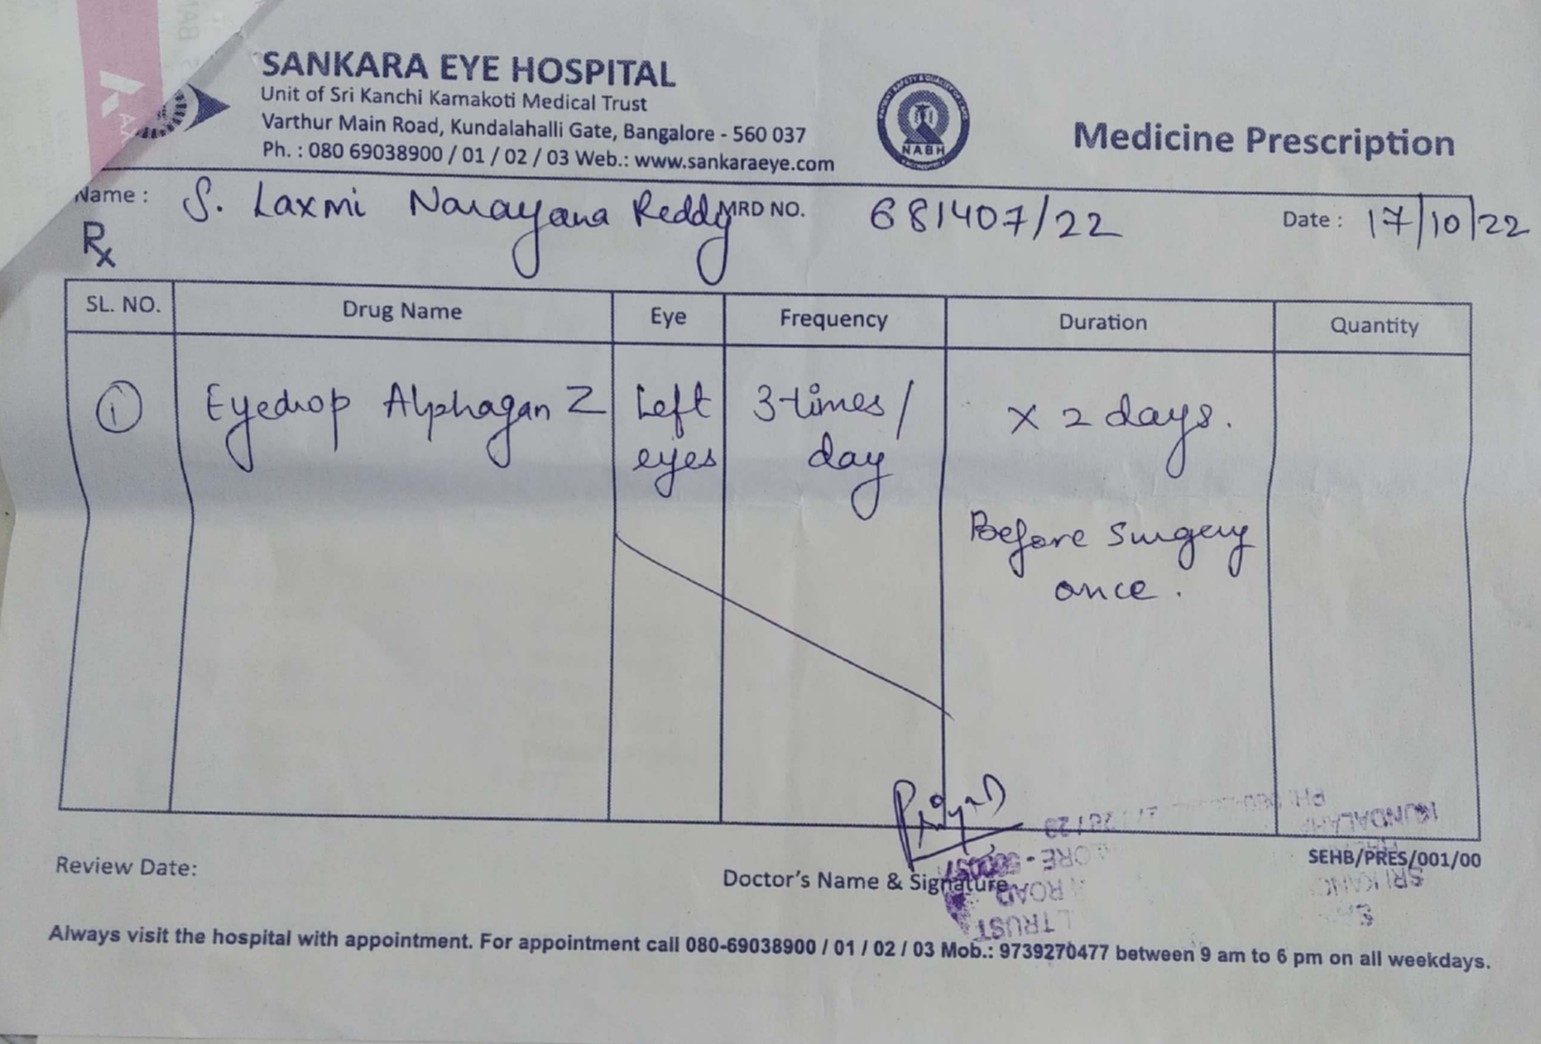 SANKARA EYE HOSPITAL
Unit of Sri Kanchi Kamakoti Medical Trust
Varthur Main Road, Kundalahalli Gate, Bangalore - 560 037
Ph. : 080 69038900 / 01 / 02 / 03 Web.: www.sankaraeye.com
NABH
Medicine Prescription
Name : S. Laxmi Narayana Reddy MRD NO. 681407/22 Date : 17/10/22
Rx
SL. NO. Drug Name Eye Frequency Duration Quantity
1 Eyedrop Alphagan Z Left 3-times / x 2 days.
eyes day
Before Surgery
once.
SEHB/PRES/001/00
Review Date:
Doctor's Name & Signature
ORE - 560037
ROAD
L TRUST
KUNDALAHA
SRI KANC
Always visit the hospital with appointment. For appointment call 080-69038900 / 01 / 02 / 03 Mob.: 9739270477 between 9 am to 6 pm on all weekdays.